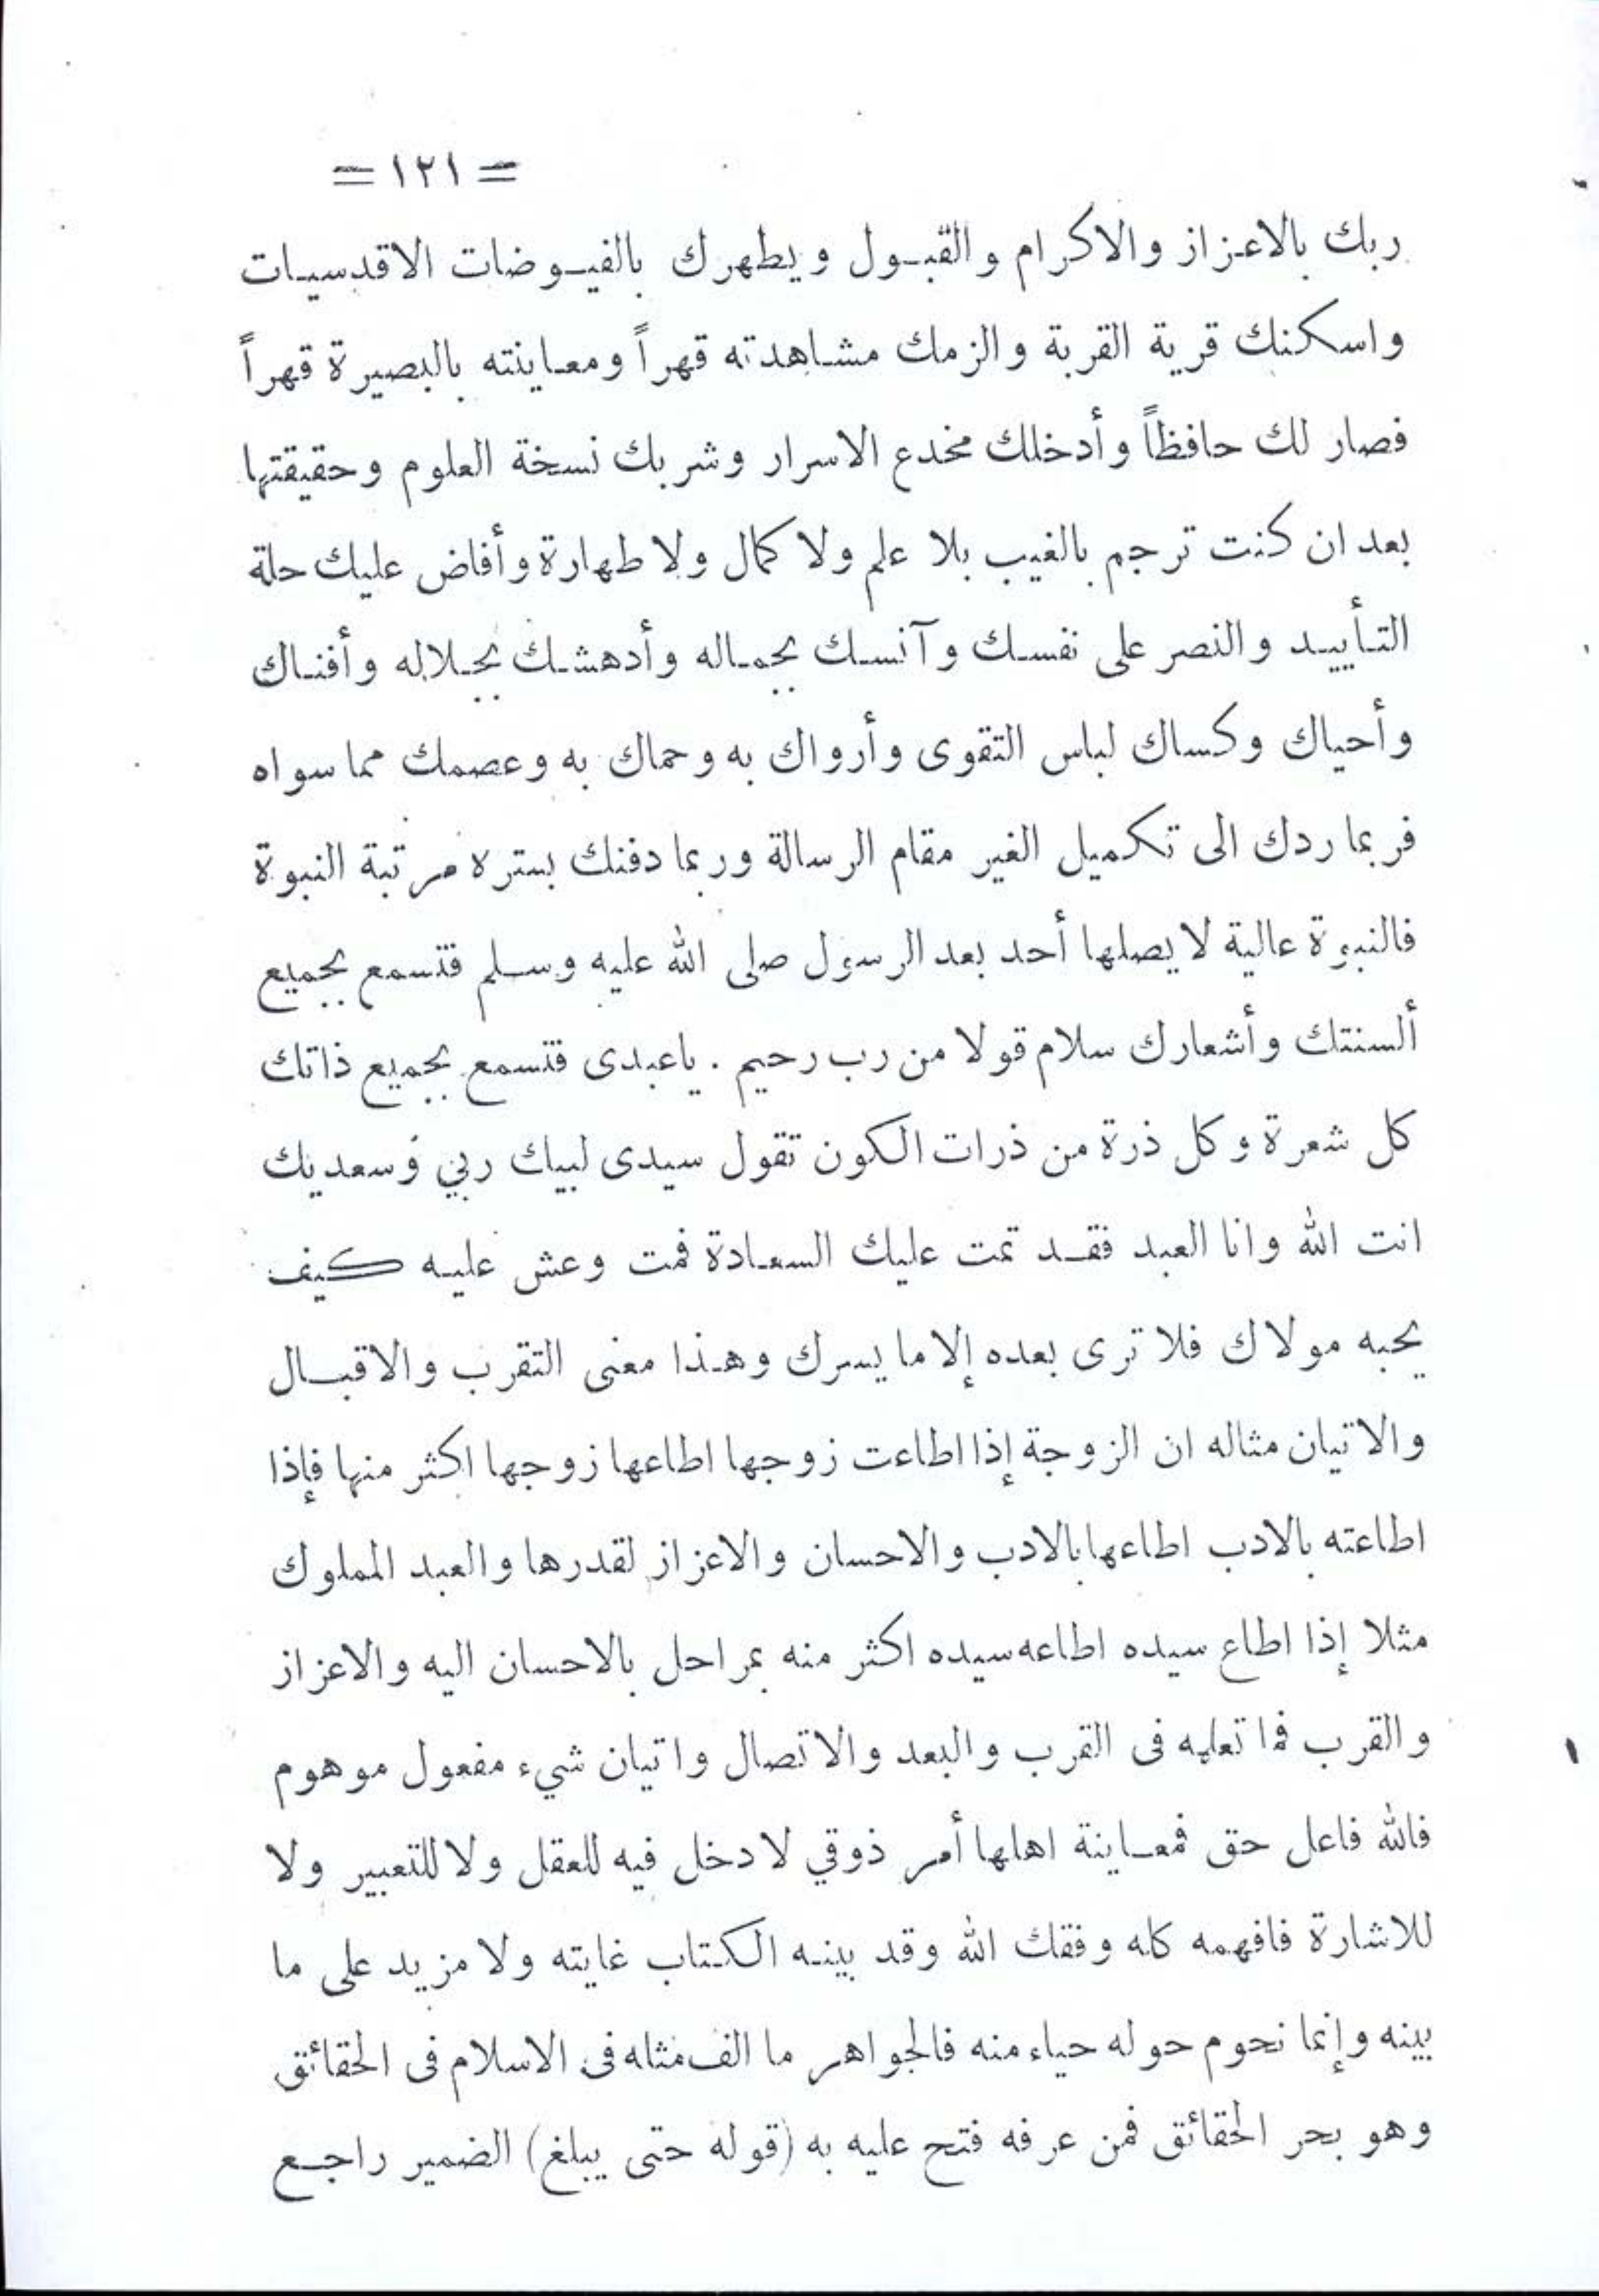 = ١٢١ =
ربك بالاعزاز والاكرام والقبول ويطهرك بالفيوضات الاقدسيات
واسكنك قرية القربة والزمك مشاهدته قهراً ومعاينته بالبصيرة قهراً
فصار لك حافظاً وأدخلك مخدع الاسرار وشربك نسخة العلوم وحقيقتها
بعد ان كنت ترجم بالغيب بلا علم ولا كمال ولا طهارة وأفاض عليك حلة
التأييد والنصر على نفسك وآنسك بجماله وأدهشك بجلاله وأفناك
وأحياك وكساك لباس التقوى وأرواك به وحماك به وعصمك مما سواه
فربما ردك الى تكميل الغير مقام الرسالة وربما دفنك بستره مرتبة النبوة
فالنبوة عالية لا يصلها أحد بعد الرسول صلى الله عليه وسلم فتسمع بجميع
ألسنتك وأشعارك سلام قولا من رب رحيم . ياعبدى فتسمع بجميع ذاتك
كل شعرة وكل ذرة من ذرات الكون تقول سيدى لبيك ربي وسعديك
انت الله وانا العبد فقد تمت عليك السعادة فمت وعش عليه كيف
يحبه مولاك فلا ترى بعده إلا ما يسرك وهذا معنى التقرب والاقبال
والاتيان مثاله ان الزوجة إذا اطاعت زوجها اطاعها زوجها اكثر منها فإذا
اطاعته بالادب اطاعها بالادب والاحسان والاعزاز لقدرها والعبد المملوك
مثلا إذا اطاع سيده اطاعه سيده اكثر منه بمراحل بالاحسان اليه والاعزاز
والقرب فما تعليه فى القرب والبعد والاتصال واتيان شيء مفعول موهوم
فالله فاعل حق فمعاينة اهلها أمر ذوقي لا دخل فيه للعقل ولا للتعبير ولا
للاشارة فافهمه كله وفقك الله وقد بينه الكتاب غايته ولا مزيد على ما
بينه وإنما نحوم حوله حياء منه فالجواهر ما الف مثاله فى الاسلام فى الحقائق
وهو بحر الحقائق فمن عرفه فتح عليه به (قوله حتى يبلغ) الضمير راجع